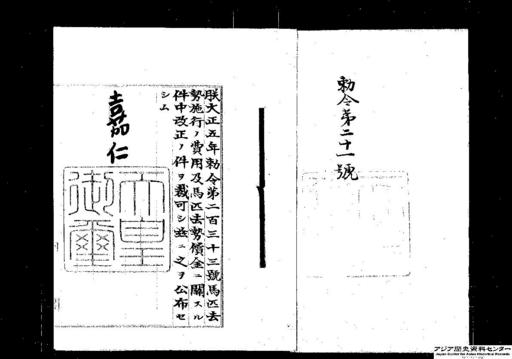 勅令第二十一號
朕大正五年勅令第二百三十三號馬匹去
勢施行ノ費用及馬匹去勢償金ニ關スル
件中改正ノ件ヲ裁可シ茲ニ之ヲ公布セ
シム
嘉仁
天皇
御璽
アジア歴史資料センター
Japan Center for Asian Historical Records